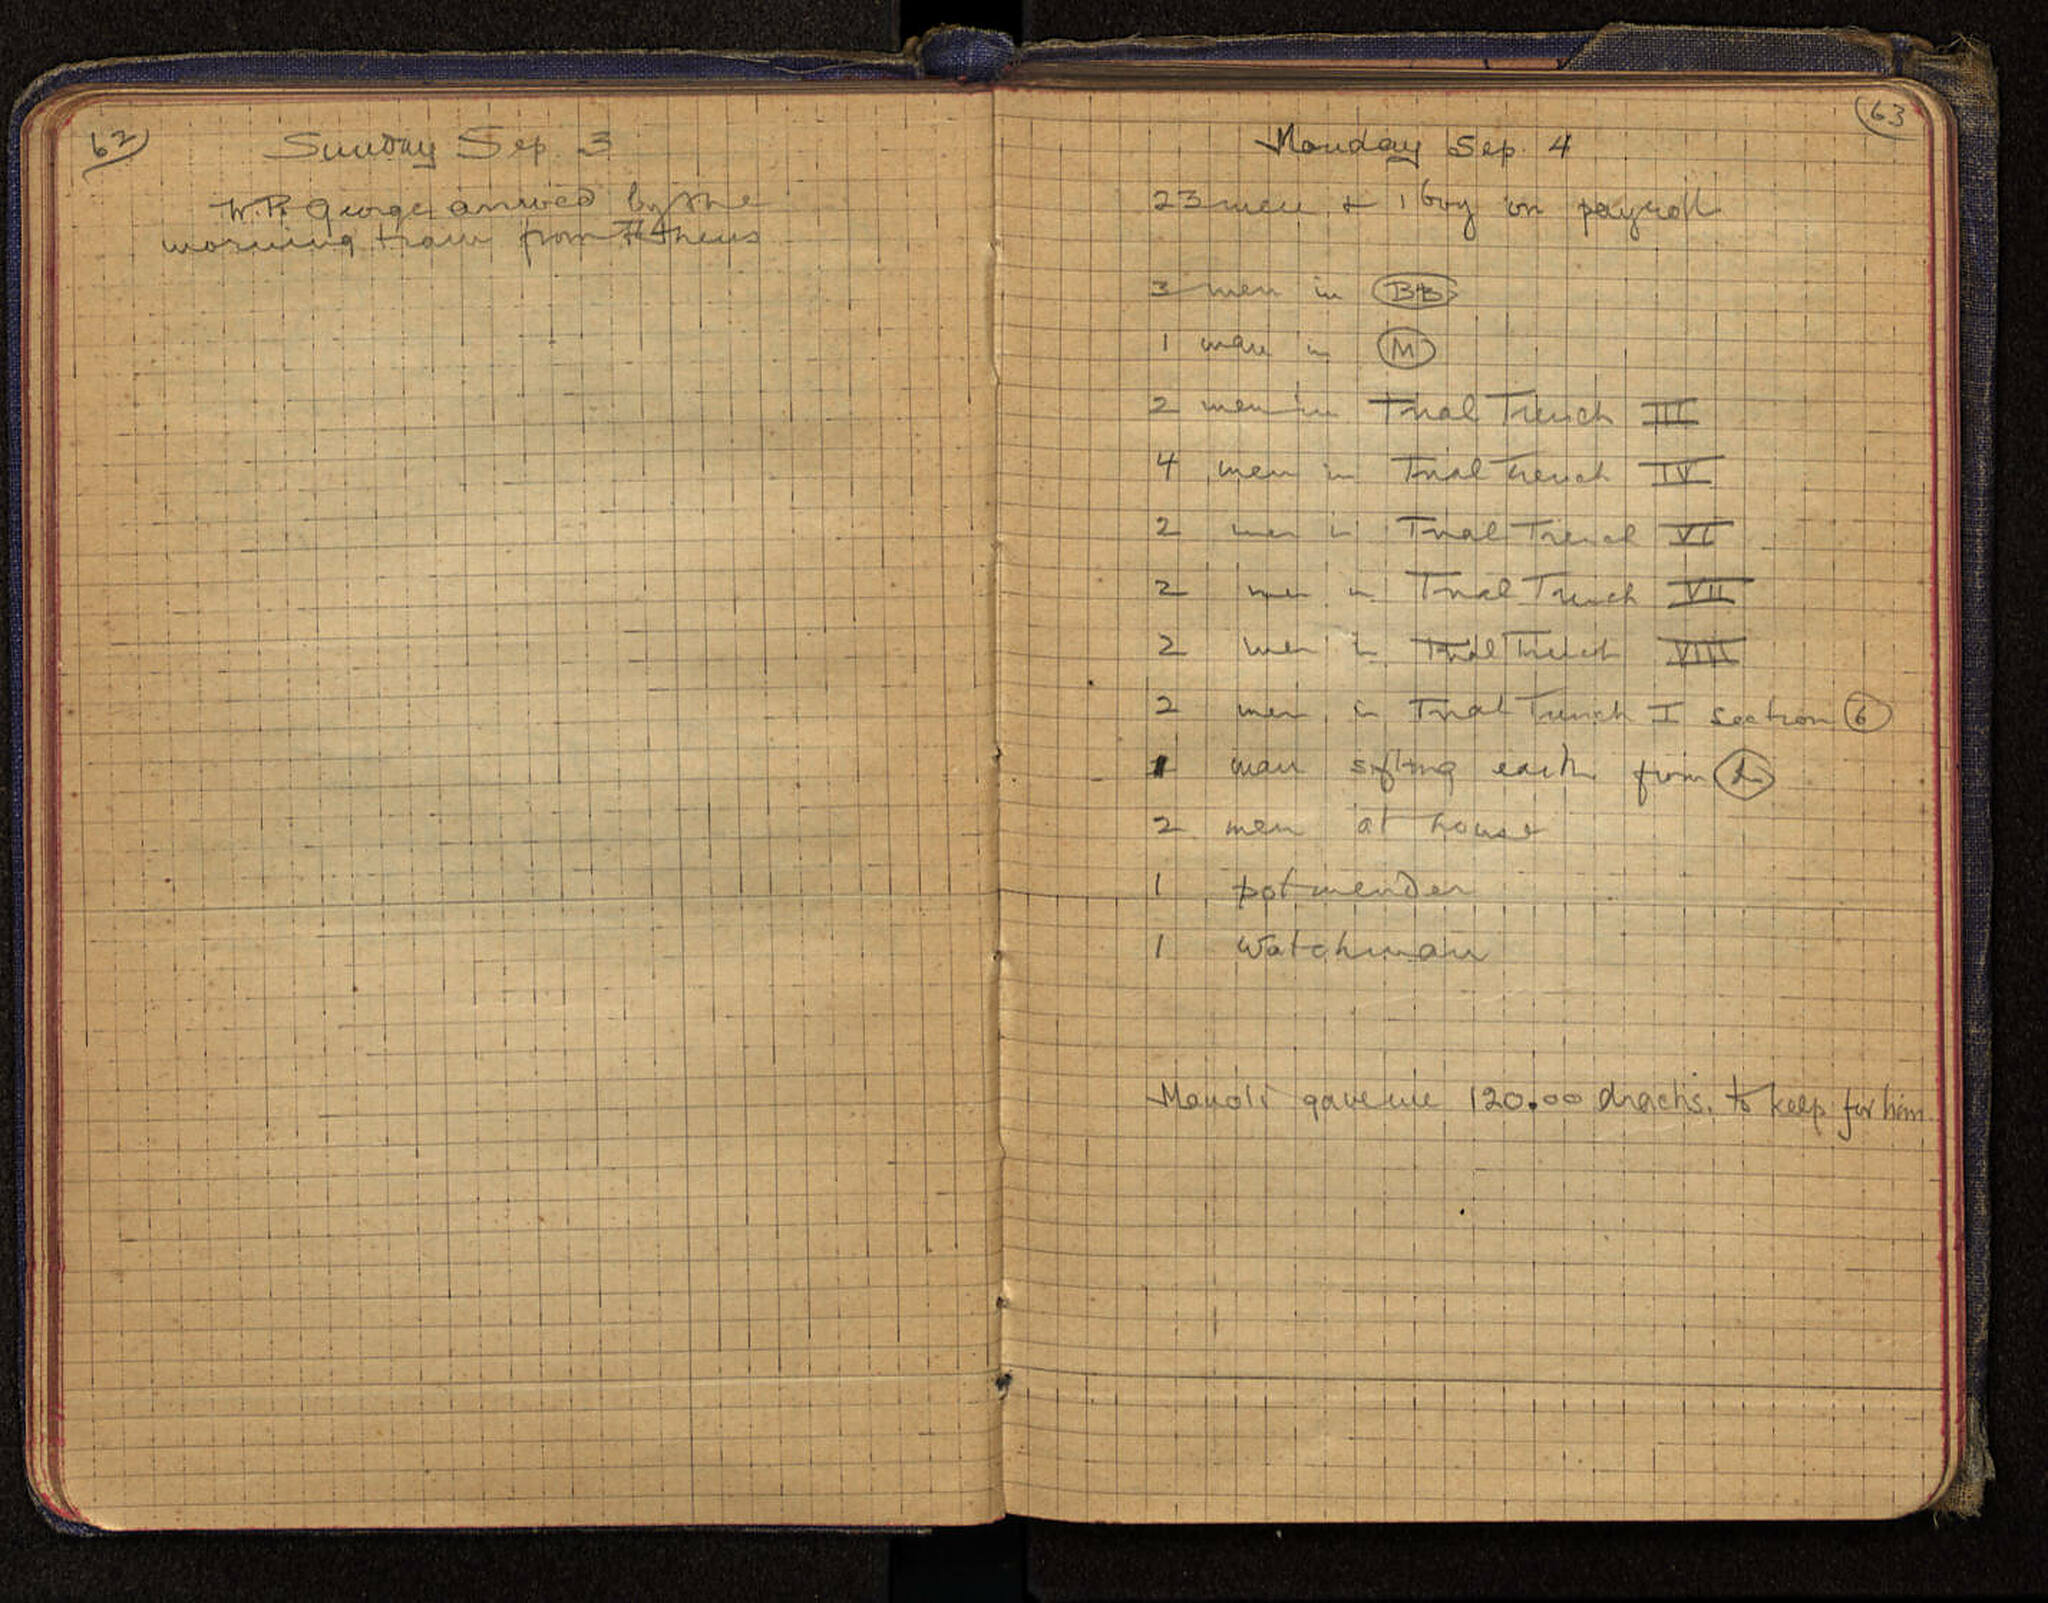 62
Sunday Sep. 3
W.R. George arrived by the
morning train from Athens
63
Monday Sep. 4
23 men & 1 boy on payroll
3 men in BB
1 man in M
2 men in Trial Trench III
4 men in Trial Trench IV
2 men in Trial Trench VI
2 men in Trial Trench VII
2 men in Trial Trench VIII
2 men in Trial Trench I section 6
1 man sifting earth from
2 men at house
1 potmender
1 watchman
Manoli gave me 120.00 drachs. to keep for him